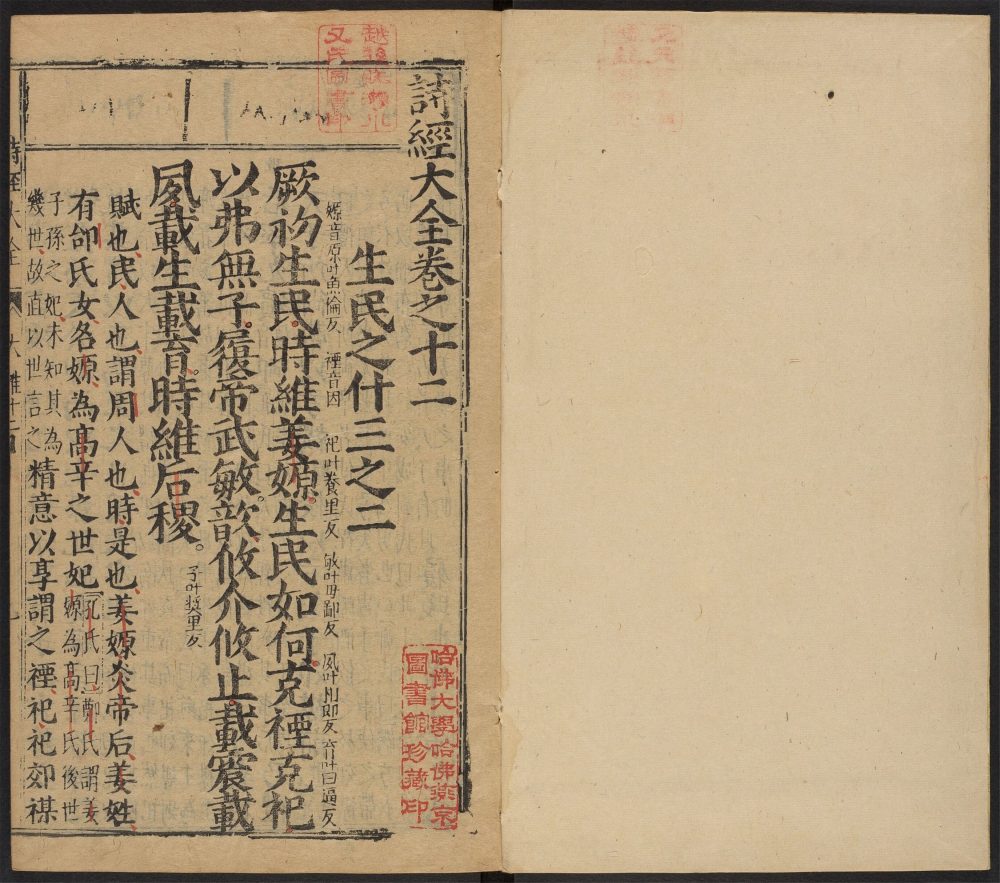 詩經大全卷之十二
生民之什三之二
嫄音原叶魚倫反 禋音因 祀叶養里反 敏叶毋鄙反 夙叶相即反 育叶曰逼反
厥初生民時維姜嫄生民如何克禋克祀
以弗無子履帝武敏歆攸介攸止載震載
夙載生載育時維后稷。子叶奬里反
賦也民人也謂周人也時是也姜嫄炎帝后姜姓
有邰氏女名嫄為高辛之世妃孔氏曰鄭氏謂姜
嫄為高辛氏後世
子孫之妃未知其為
幾世故直以世言之精意以享謂之禋祀祀郊禖
詩經大全
哈佛大學哈佛燕京
圖書館珍藏印